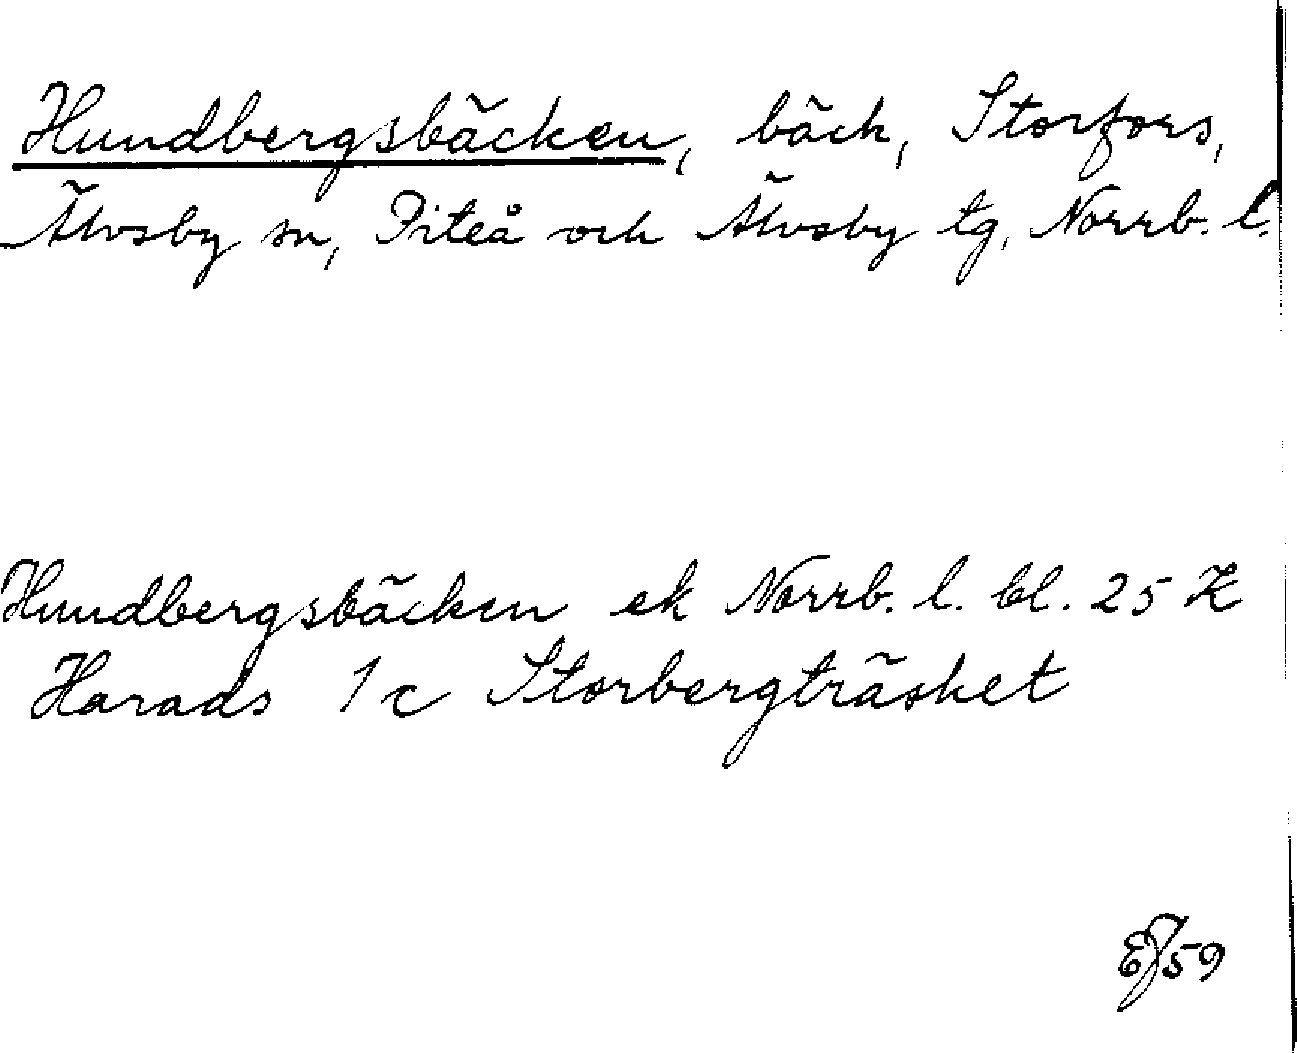 Hundbergsbäcken, bäck, Storfors,
Älvsby sn, Piteå och Älvsby tg, Norrb. l.
Hundbergsbäcken ek Norrb. l. bl. 25 K
Harads 1 c Storbergträsket
EJ 59